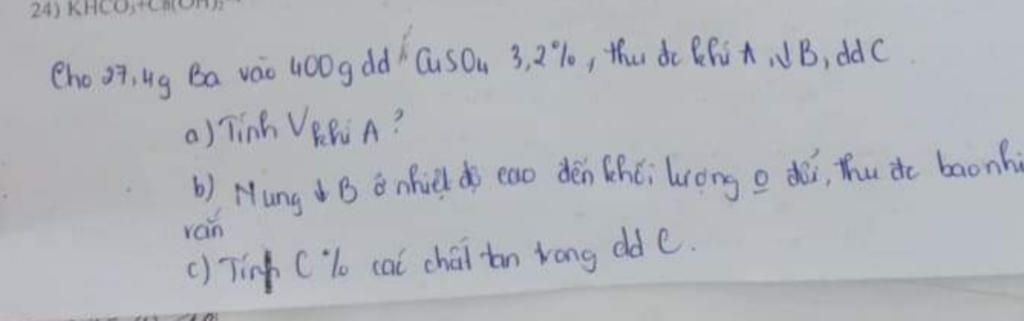 24) KHCO₃+Ca(OH)₂
Cho 27,4g Ba vào 400g dd CuSO₄ 3,2%, thu đc khí A, ↓B, dd C
a) Tính V khí A?
b) Nung ↓ B ở nhiệt độ cao đến khối lượng o đổi, thu đc bao nhi
rắn
c) Tính C% các chất tan trong dd C.